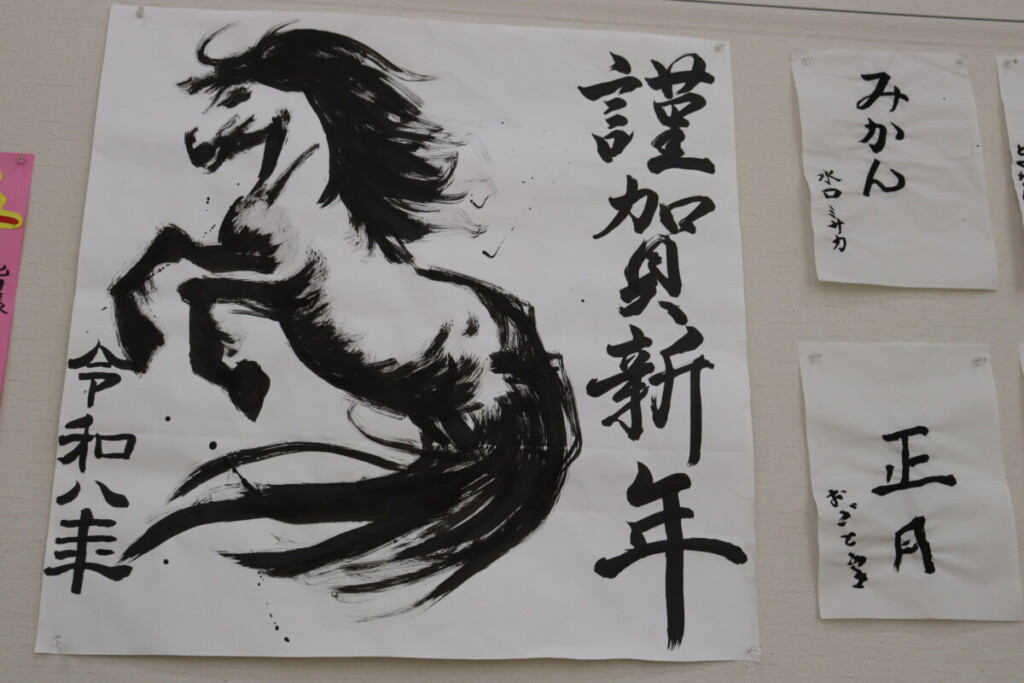 謹賀新年
令和八年
みかん
水口ミサカ
正月